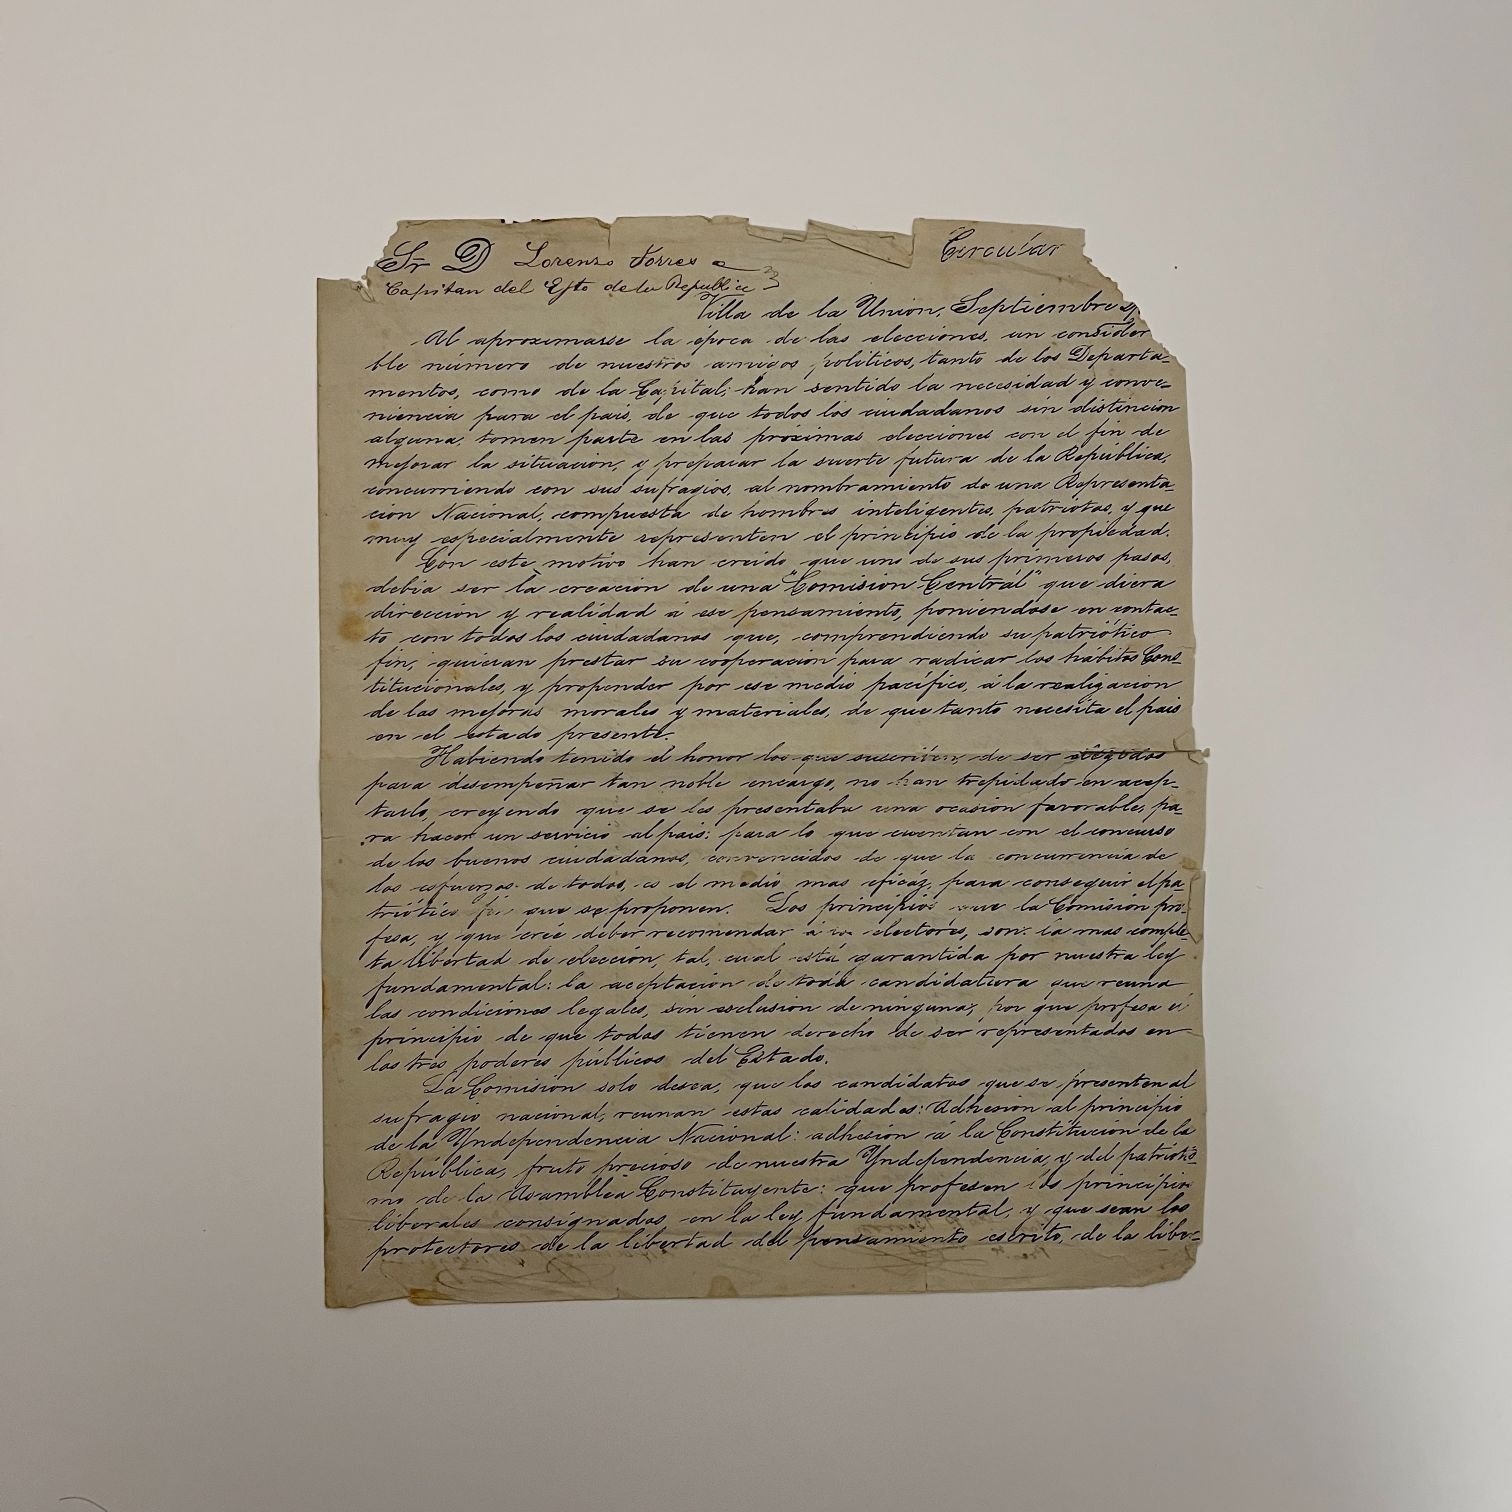 Sr D Lorenzo Torres
Circular
Capitan del Ejto de la Republica
Villa de la Union, Septiembre
Al aproximarse la época de las elecciones, un consider
ble número de nuestros amigos politicos, tanto de los Departa=
mentos, como de la Capital; han sentido la necesidad y conve=
niencia para el pais, de que todos los ciudadanos sin distincion
alguna, tomen parte en las próximas elecciones con el fin de
mejorar la situacion, y preparar la suerte futura de la República,
concurriendo con sus sufragios, al nombramiento de una Representa=
cion Nacional, compuesta de hombres inteligentes, patriotas, y que
muy especialmente representen el principio de la propiedad.
Con este motivo han creido que uno de sus primeros pasos,
debia ser la creacion de una "Comision Central" que diera
direccion y realidad á ese pensamiento, poniendose en contac=
to con todos los ciudadanos que, comprendiendo su patriótico
fin, quieran prestar su cooperacion para radicar los hábitos Cons=
titucionales, y propender por ese medio pacífico, á la realizacion
de las mejoras morales y materiales, de que tanto necesita el pais
en el estado presente.
Habiendo tenido el honor los que suscriben, de ser
para desempeñar tan noble encargo, no han trepidado en acep=
tarlo, creyendo que se les presentaba una ocasion favorable, pa=
ra hacer un servicio al pais: para lo que cuentan con el concurso
de los buenos ciudadanos, convencidos de que la concurrencia de
los esfuerzos de todos, es el medio mas eficáz, para conseguir el pa=
triótico fin que se proponen. Los principios que la Comision pro=
fesa, y que créé deber recomendar á los electores, son: la mas comple=
ta libertad de eleccion, tal, cual está garantida por nuestra ley
fundamental: la aceptacion de toda candidatura que reuna
las condiciones legales, sin esclusion de ninguna; por que profesa el
principio de que todos tienen derecho de ser representados en
los tres poderes públicos del Estado.
La Comision solo desea, que los candidatos que se presenten al
sufragio nacional, reunan estas calidades: Adhesion al principio
de la Yndependencia Nacional: adhesion á la Constitucion de la
República, fruto precioso de nuestra Yndependencia, y del patriotis=
mo de la Asamblea Constituyente: que profesen los principios
liberales consignados, en la ley fundamental, y que sean los
protectores de la libertad del pensamiento escrito, de la liber=